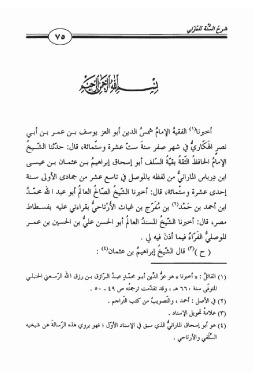 شرح السنة للمزني
٧٥
بسم الله الرحمن الرحيم
أخبرنا(١) الفقيه الإمام شمس الدين أبو العز يوسف بن عمر بن أبي
نصر الهكاري في شهر صفر سنة ست عشرة وستمائة، قال: حدثنا الشيخ
الإمام الحافظ الثقة بقية السلف أبو إسحاق إبراهيم بن عثمان بن عيسى
ابن درباس الماراني من لفظه بالموصل في تاسع عشر من جمادى الأولى سنة
إحدى عشرة وستمائة، قال: أخبرنا الشيخ الصالح العالم أبو عبد الله محمد
ابن أحمد بن حمد(٢) بن مفرج بن غياث الأرتاحي بقراءتي عليه بفسطاط
مصر، قال: أخبرنا الشيخ المسند العالم أبو الحسن علي بن الحسين بن عمر
الموصلي الفراء فيما أذن فيه لي .
( ح )(٣) قال الشيخ إبراهيم بن عثمان(٤):
(١) القائل: « أخبرنا » هو عز الدين أبو محمد عبد الرازق بن رزق الله الرسعني الحنبلي
المتوفى سنة ٦٦٠ هـ ، وقد تقدمت ترجمته ص ٤٩ ـ ٥٠ .
(٢) في الأصل : أحمد ، والتصويب من كتب التراجم .
(٣) علامة تحويل الإسناد .
(٤) هو أبو إسحاق الماراني الذي سبق في الإسناد الأول ؛ فهو يروي هذه الرسالة عن شيخيه
السلفي والأرتاحي .